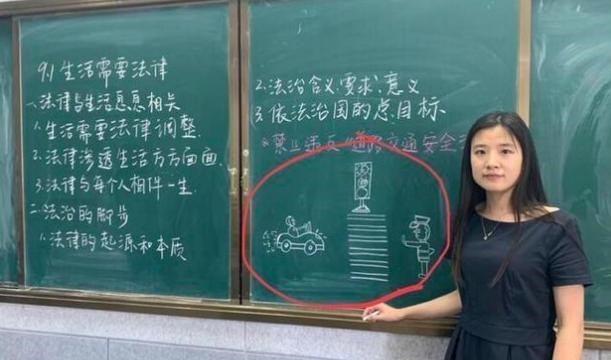 9.1 生活需要法律
一、法律与生活息息相关
1.生活需要法律调整
2.法律渗透生活方方面面
3.法律与每个人相伴一生
二、法治的脚步
1.法律的起源和本质
2.法治含义、要求、意义
3.依法治国的总目标
禁止违反 道路交通安全